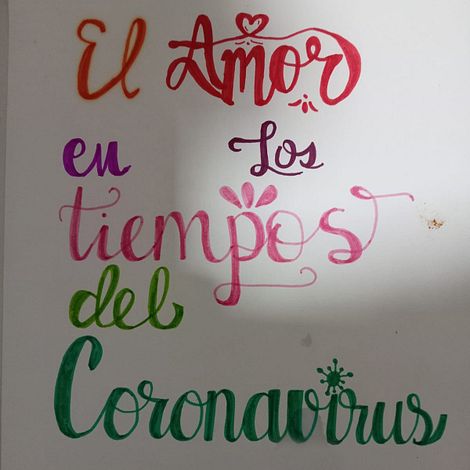 El Amor
en Los
tiempos
del
Coronavirus